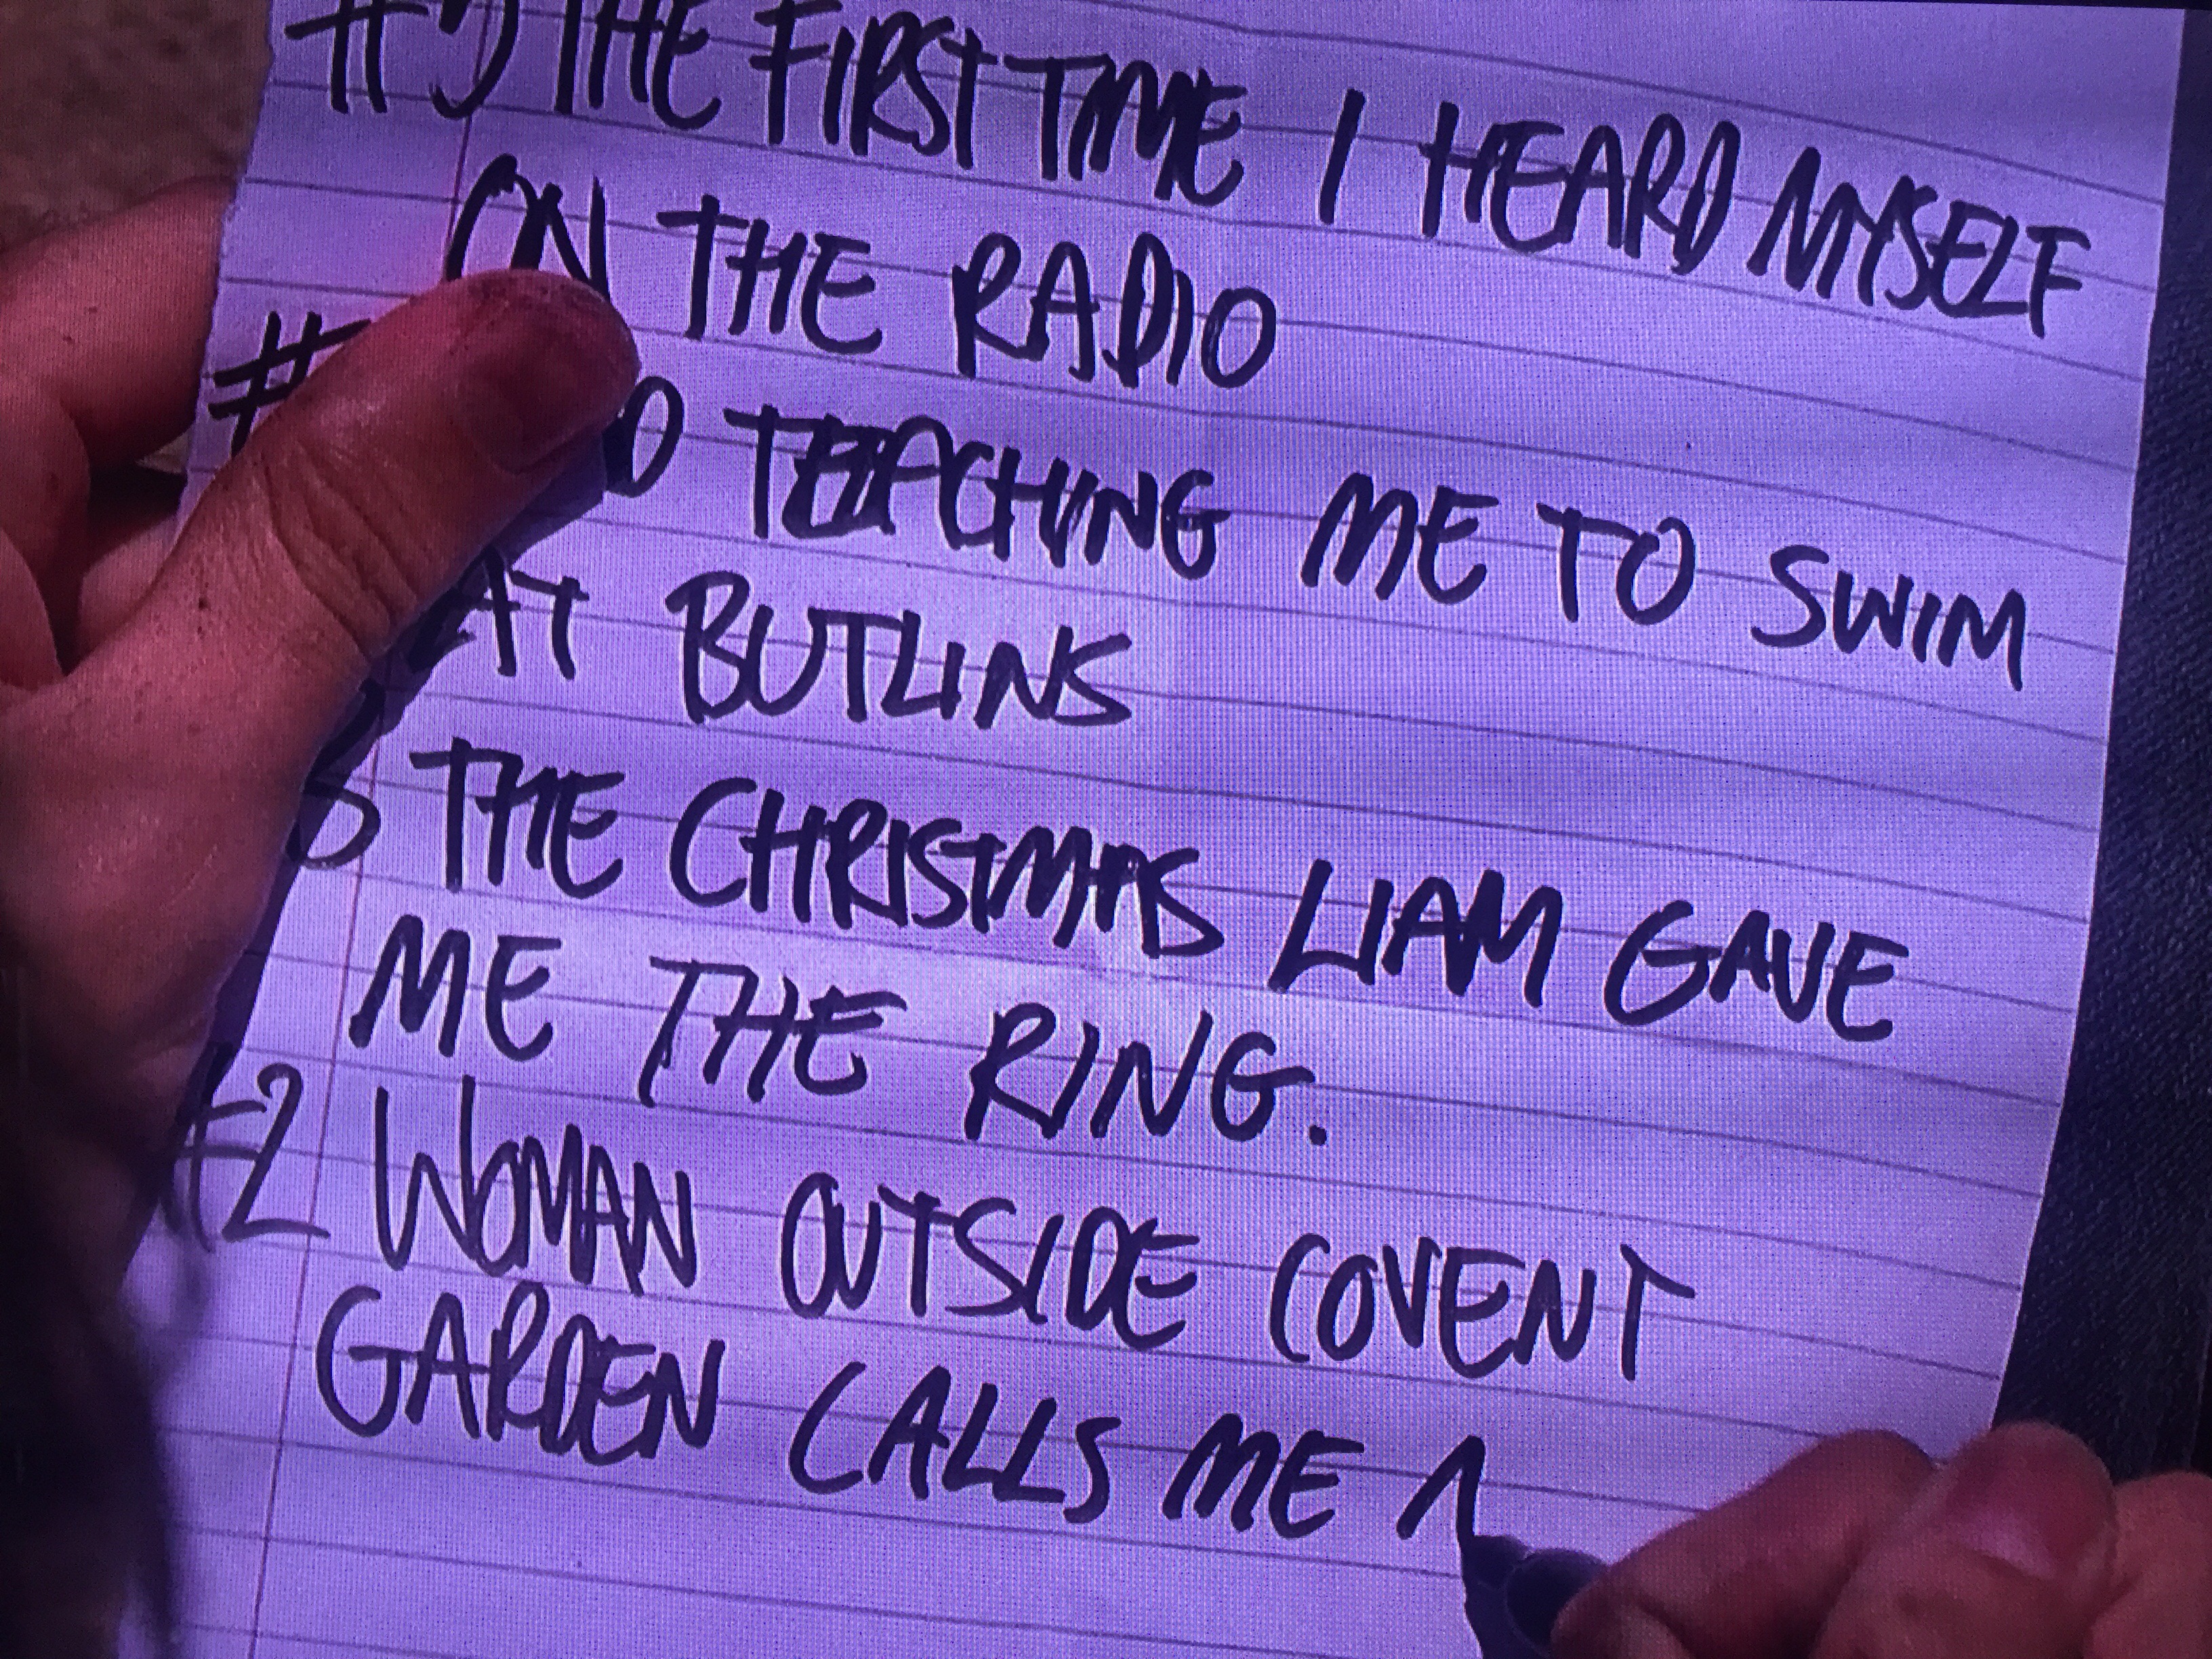 #5 THE FIRST TIME I HEARD MYSELF
ON THE RADIO
# TEACHING ME TO SWIM
AT BUTLINS
3 THE CHRISTMAS LIAM GAVE
ME THE RING.
#2 WOMAN OUTSIDE COVENT
GARDEN CALLS ME